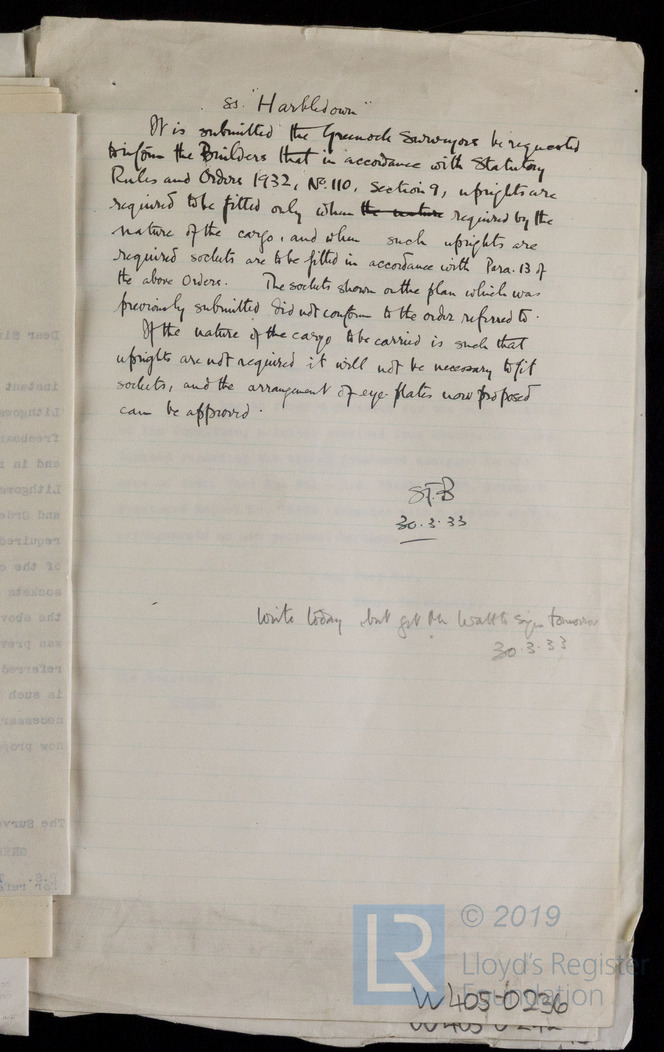 ss. "Harbledown"
It is submitted the Greenock Surveyors be requested
to inform the Builders that in accordance with Statutory
Rules and Orders 1932, No. 110, Section 9, uprights are
required to be fitted only when the nature required by the
nature of the cargo, and when such uprights are
required sockets are to be fitted in accordance with Para. 13 of
the above Orders. The sockets shown on the plan which was
previously submitted did not conform to the order referred to.
If the nature of the cargo to be carried is such that
uprights are not required it will not be necessary to fit
sockets, and the arrangement of eye-plates now proposed
can be approved.
30.3.33
Write today but get Mr Watt to sign tomorrow
30.3.33
Dear Sir
instant
Lithgows
freeboard
and in
Lithgows
and Orde
required
of the c
sockets
the abov
was prev
referred
is such
necessar
now prop
The Surve
GREE
For refe
LR
© 2019
Lloyd's Register
Foundation
W405-0236